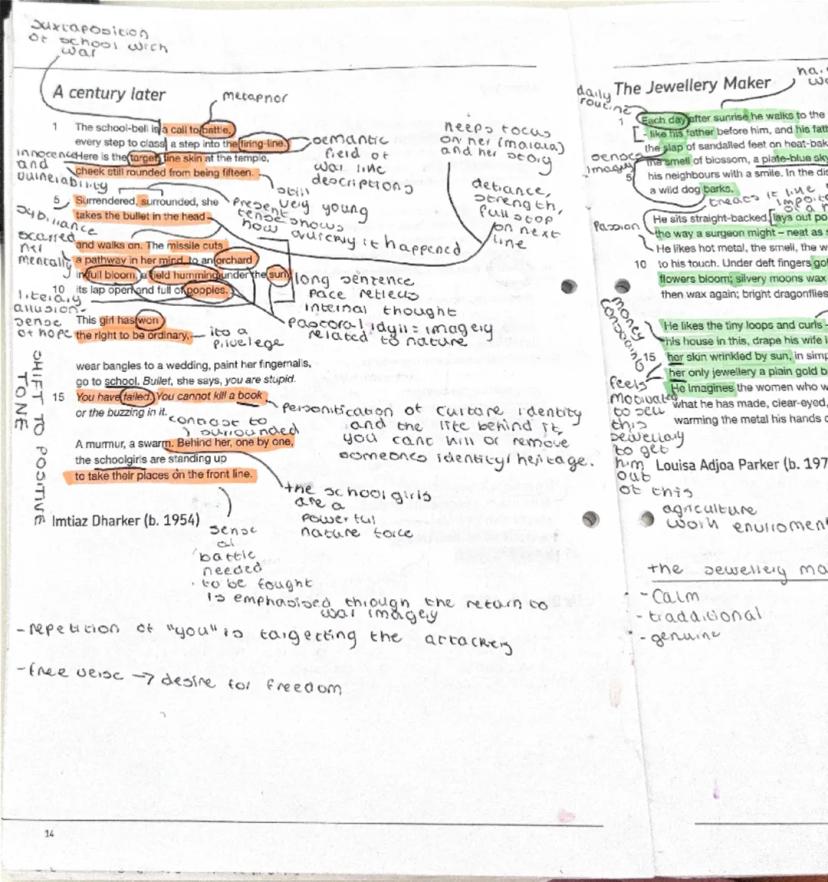 juxtaposition
of school with
war
A century later
metaphor
1 The school-bell is a call to battle,
every step to class, a step into the firing-line.
Here is the target, fine skin at the temple,
cheek still rounded from being fifteen.
innocence
and
vulnerability
semantic
field of
war like
descriptions
still
very young
5 Surrendered, surrounded, she
takes the bullet in the head
present
tense shows
how quickly it happened
sibilance
keeps focus
on her (malala)
and her story
defiance,
strength,
full stop
on next
line
scarred
her
mentally
and walks on. The missile cuts
a pathway in her mind, to an orchard
in full bloom, a field humming under the sun,
10 its lap open and full of poppies.
long sentence
pace reflects
internal thought
pastoral idyll = imagery
related to nature
literary
allusion-
sense
of hope
This girl has won
the right to be ordinary,
its a
privelege
SHIFT TO POSITIVE
TONE
wear bangles to a wedding, paint her fingernails,
go to school. Bullet, she says, you are stupid.
15 You have failed. You cannot kill a book
or the buzzing in it.
contrast to
surrounded
personification of culture identity
and the life behind it,
you cant kill or remove
someones identity/heritage.
A murmur, a swarm. Behind her, one by one,
the schoolgirls are standing up
to take their places on the front line.
the schoolgirls
are a
powerful
nature force
Imtiaz Dharker (b. 1954)
sense
of
battle
needed
to be fought
is emphasised through the return to
war imagery
- repetition of "you" is targetting the attackers
- free verse → desire for freedom
14
The Jewellery Maker
daily
routine
1 Each day after sunrise he walks to the
- like his father before him, and his fath
the slap of sandalled feet on heat-bak
the smell of blossom, a plate-blue sky
5 his neighbours with a smile. In the di
a wild dog barks.
sense
imagery
treats it like
Passion
He sits straight-backed, lays out po
the way a surgeon might – neat as
He likes hot metal, the smell, the w
10 to his touch. Under deft fingers go
flowers bloom; silvery moons wax
then wax again; bright dragonflies
money
He likes the tiny loops and curls –
his house in this, drape his wife i
15 her skin wrinkled by sun, in simp
her only jewellery a plain gold b
He imagines the women who w
what he has made, clear-eyed,
warming the metal his hands
feels
motivated
to sell
this
jewellary
to get
him
out
of this
agriculture
work enviromen
Louisa Adjoa Parker (b. 197
the jewellery ma
- calm
- tradditional
- genuine